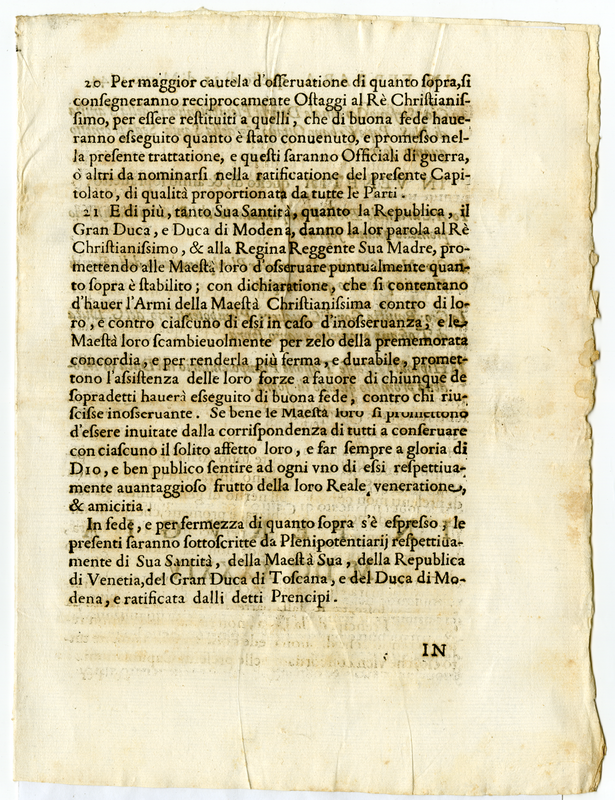 20 Per maggior cautela d'oſſeruatione di quanto ſopra, ſi
conſegneranno reciprocamente Oſtaggi al Rè Chriſtianiſ-
ſimo, per eſſere reſtituiti a quelli, che di buona fede haue-
ranno eſſeguito quanto è ſtato conuenuto, e promeſſo nel-
la preſente trattatione, e queſti ſaranno Officiali di guerra,
ò altri da nominarſi nella ratificatione del preſente Capi-
tolato, di qualità proportionata da tutte le Parti.
21 E di più, tanto Sua Santità, quanto la Republica, il
Gran Duca, e Duca di Modena, danno la lor parola al Rè
Chriſtianiſſimo, & alla Regina Reggente Sua Madre, pro-
mettendo alle Maeſtà loro d'oſſeruare puntualmente quan-
to ſopra è ſtabilito; con dichiaratione, che ſi contentano
d'hauer l'Armi della Maeſtà Chriſtianiſſima contro di lo-
ro, e contro ciaſcuno di eſſi in caſo d'inoſſeruanza; e le
Maeſtà loro ſcambieuolmente per zelo della prememorata
concordia, e per renderla più ferma, e durabile, promet-
tono l'aſſiſtenza delle loro forze a fauore di chiunque de
ſopradetti hauerà eſſeguito di buona fede, contro chi riu-
ſciſſe inoſſeruante. Se bene le Maeſtà loro ſi promettono
d'eſſere inuitate dalla corriſpondenza di tutti a conſeruare
con ciaſcuno il ſolito affetto loro, e far ſempre a gloria di
DIO, e ben publico ſentire ad ogni vno di eſſi reſpettiua-
mente auantaggioſo frutto della loro Reale veneratione,
& amicitia.
In fede, e per fermezza di quanto ſopra s'è eſpreſſo, le
preſenti ſaranno ſottoſcritte da Plenipotentiarij reſpettiua-
mente di Sua Santità, della Maeſtà Sua, della Republica
di Venetia, del Gran Duca di Toſcana, e del Duca di Mo-
dena, e ratificata dalli detti Prencipi.
IN